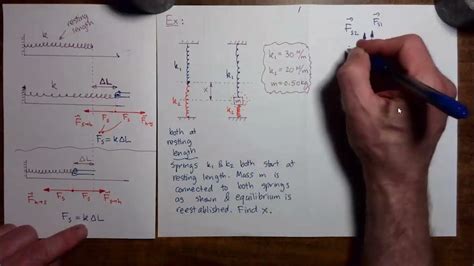 k
resting
length
k
ΔL
F s→h
Fs
Fs
F h→s
Fs = kΔL
F h→s
Fs
Fs
F s→h
Fs = kΔL
Ex:
k₁
k₂
k₁
x
m
k₂
k₁ = 30 N/m
k₂ = 20 N/m
m = 0.50 kg
both at
resting
length
Springs k₁ & k₂ both start at
resting length. Mass m is
connected to both springs
as shown & equilibrium is
reestablished. Find x.
F s2
F s1